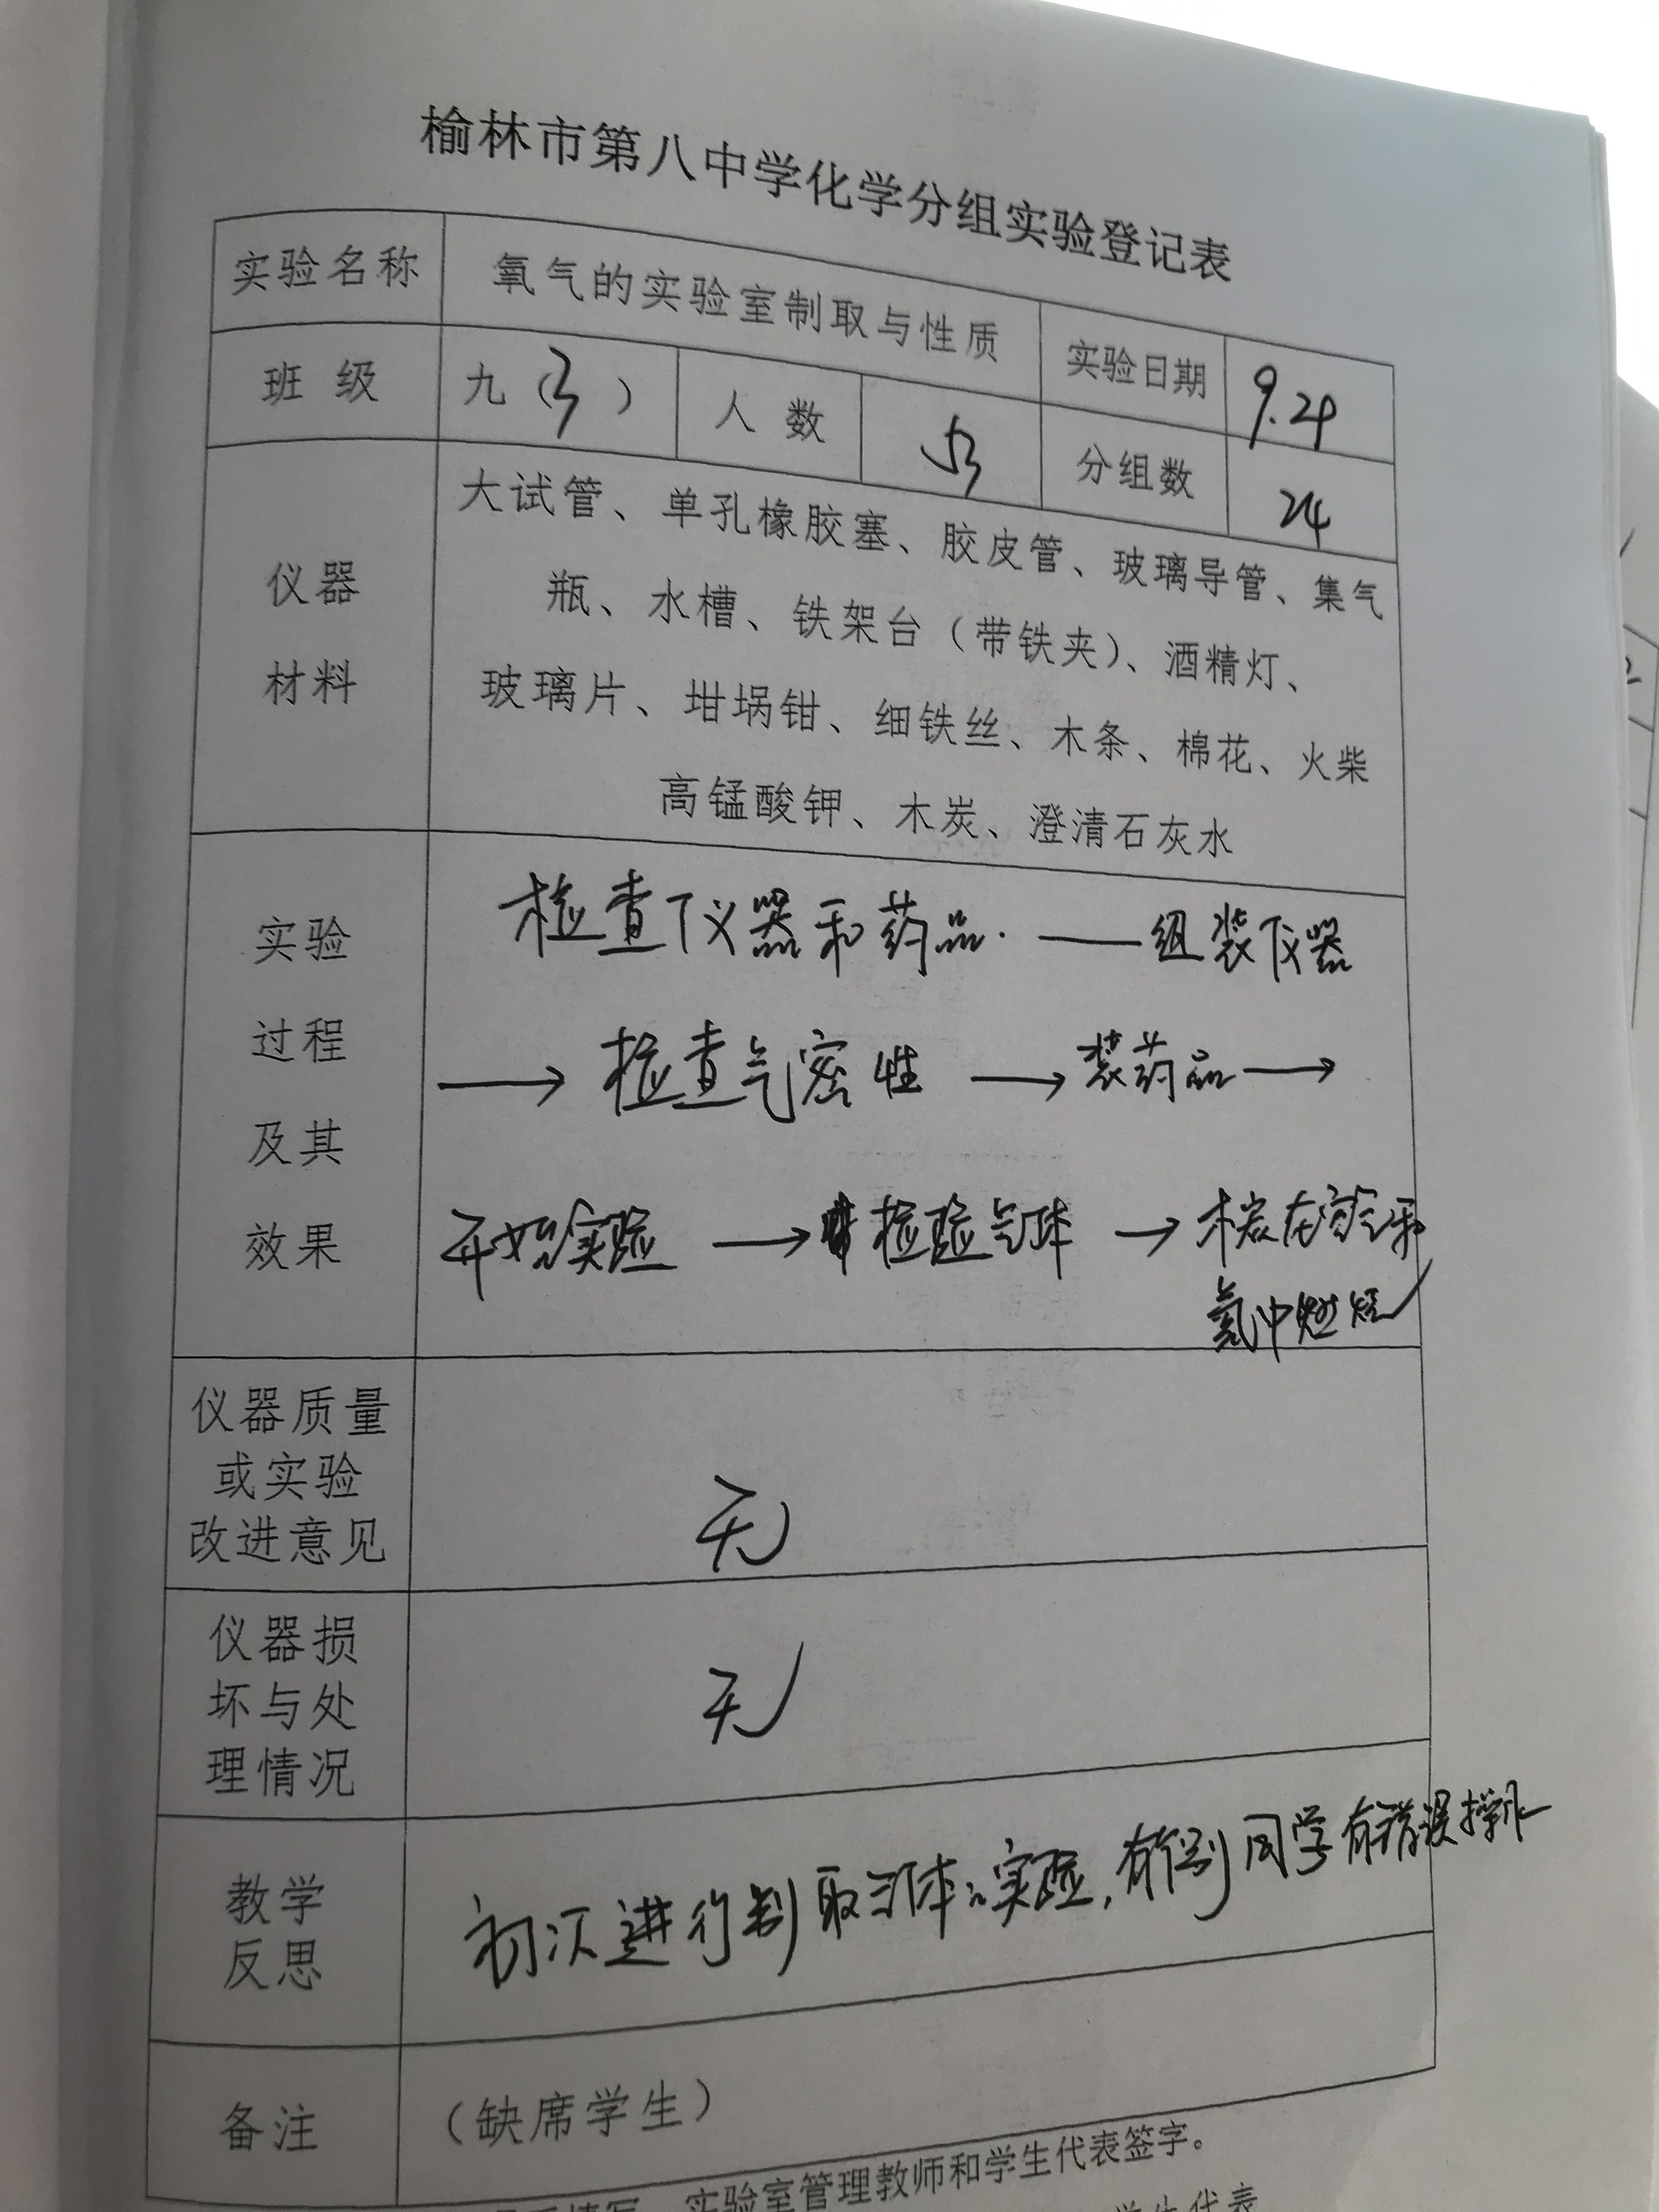 榆林市第八中学化学分组实验登记表
实验名称 氧气的实验室制取与性质 实验日期 9.24
班 级 九（3） 人 数 53 分组数 24
仪器
材料
大试管、单孔橡胶塞、胶皮管、玻璃导管、集气
瓶、水槽、铁架台（带铁夹）、酒精灯、
玻璃片、坩埚钳、细铁丝、木条、棉花、火柴
高锰酸钾、木炭、澄清石灰水
实验
过程
及其
效果
检查仪器和药品. ——组装仪器
→ 检查气密性 → 装药品 →
开始实验 → 检验气体 → 木炭在空气和
氧中燃烧
仪器质量
或实验
改进意见
无
仪器损
坏与处
理情况
无
教学
反思
初次进行制取气体的实验，有个别同学有错误操作
备注 （缺席学生）
实验室管理教师和学生代表签字。
学生代表